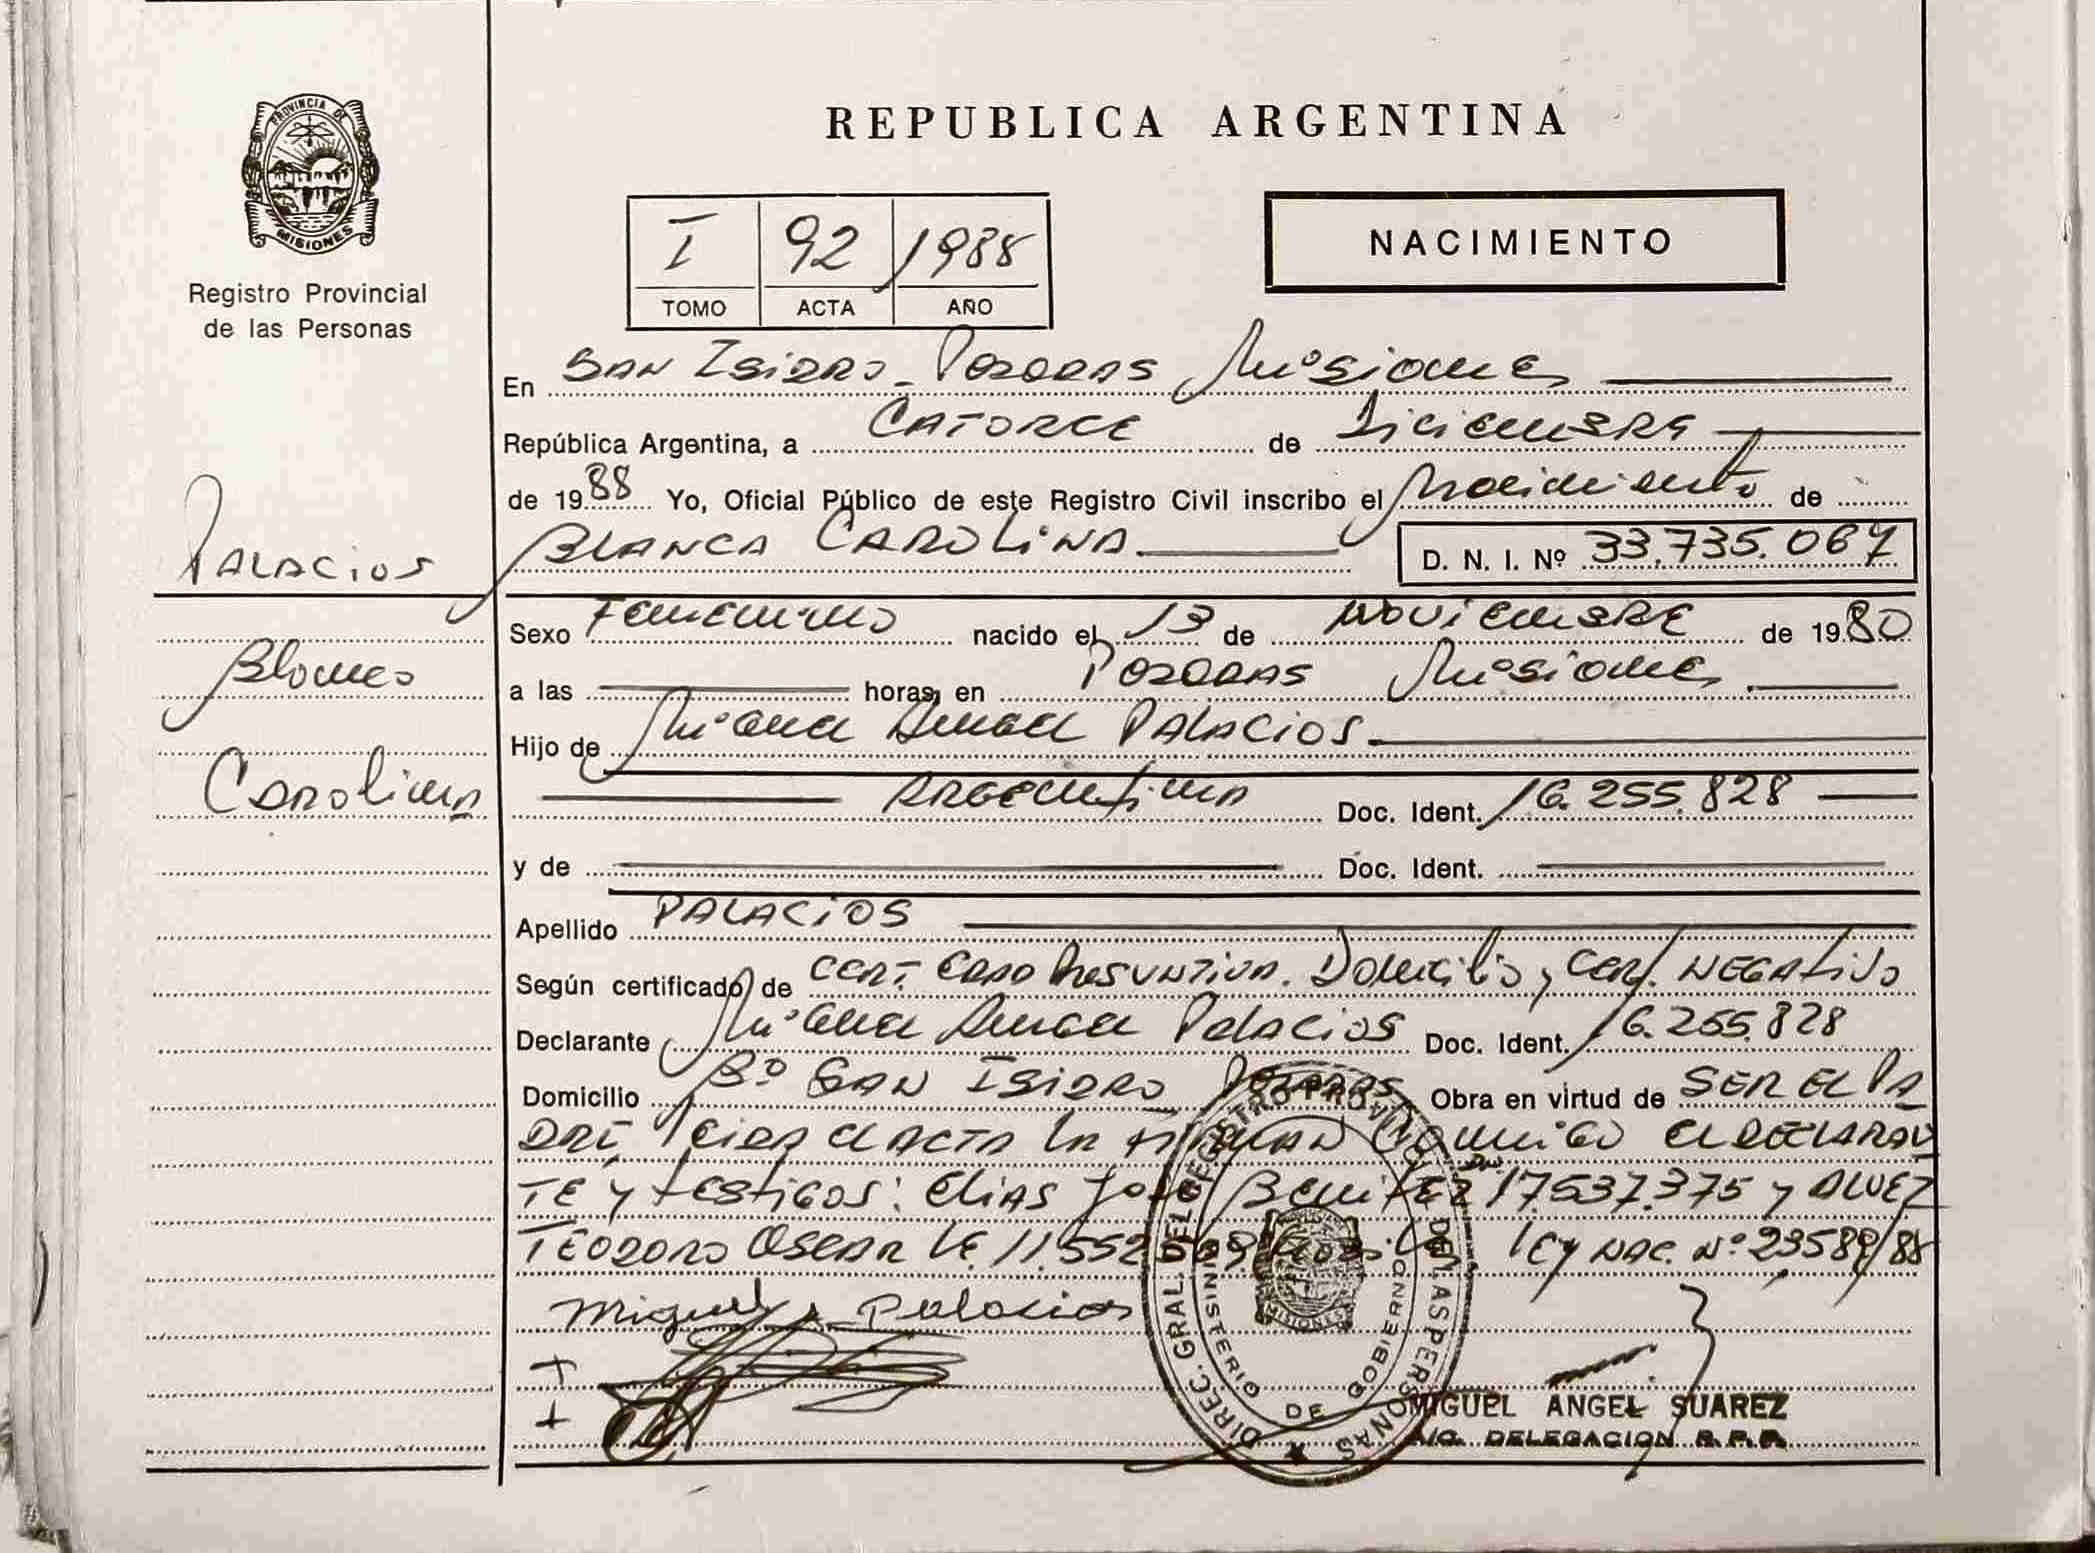 PROVINCIA DE
MISIONES
Registro Provincial
de las Personas
REPUBLICA ARGENTINA
I 92 1988
TOMO ACTA AÑO
NACIMIENTO
En SAN ISIDRO - POSADAS Misiones
República Argentina, a CATORCE de Diciembre
de 1988 Yo, Oficial Público de este Registro Civil inscribo el Nacimiento de
BLANCA CAROLINA D. N. I. Nº 33.735.067
PALACIOS
Blanca
Carolina
Sexo Femenino nacido el 13 de NOVIEMBRE de 1980
a las horas, en POSADAS Misiones
Hijo de Miguel Angel PALACIOS
ARGENTINA Doc. Ident. 16.255.828
y de Doc. Ident.
Apellido PALACIOS
Según certificado de CERT. EDAD PRESUNTIVA. DOMICILIO y CERT. NEGATIVO
Declarante Miguel Angel Palacios Doc. Ident. 16.255.828
Domicilio Bº SAN ISIDRO POSADAS Obra en virtud de SER EL PA
DRE, leida el ACTA la FIRMAN Conmigo el DECLARAN
TE y testigos: ELIAS José Benitez 17.537.375 y ALVEZ
TEODORO OSCAR LE. 11.552 LEY NAC. Nº 23589/88
Miguel A Palacios
DIREC. GRAL. DEL REGISTRO PROVINCIAL DE LAS PERSONAS
MINISTERIO DE GOBIERNO
MISIONES
MIGUEL ANGEL SUAREZ
DELEGACION R.P.P.